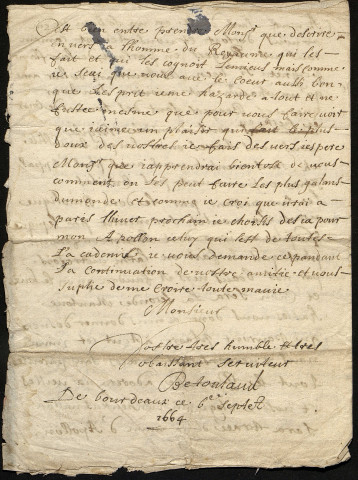 est bien entreprendre Monsr. que descrire
n vers a lhomme du Royaume qui les
fait et qui les cognoit Lemieux mais comme
ie scay que vous aues le coeur aussi bon
que Lesprit ie me hazarde a tout et ne
fusse mesme que pour vous faire voir
que plaisir qui fait le plus
doux des nostres ie fais des vers iespere
Monsr. que iapprendrai bientost de vous
comment on Les peut faire Les plus galans
du monde et comme ie croi que iirai a
paris Lhiuer prochain ie choisis desia pour
mon Apollon celuy qui lest de toutes
L'academie ie vous demande cependant
La continuation de vostre amitie et vous
suplie de me croire toute ma vie
Monsieur
Vostre tres humble et tres
obeissant seruiteur
Betoulaud
De bourdeaux ce 6e septer
1664